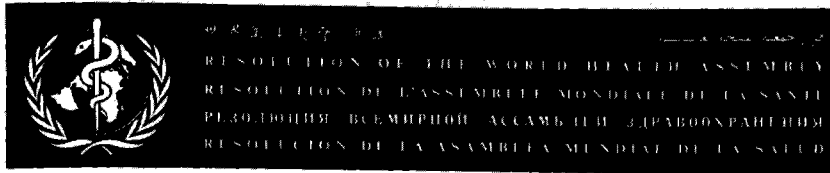 RESOLUTION OF THE WORLD HEALTH ASSEMBLY
RESOLUTION DE L'ASSEMBLEE MONDIALE DE LA SANTE
РЕЗОЛЮЦИЯ ВСЕМИРНОЙ АССАМБЛЕИ ЗДРАВООХРАНЕНИЯ
RESOLUCION DE LA ASAMBLEA MUNDIAL DE LA SALUD